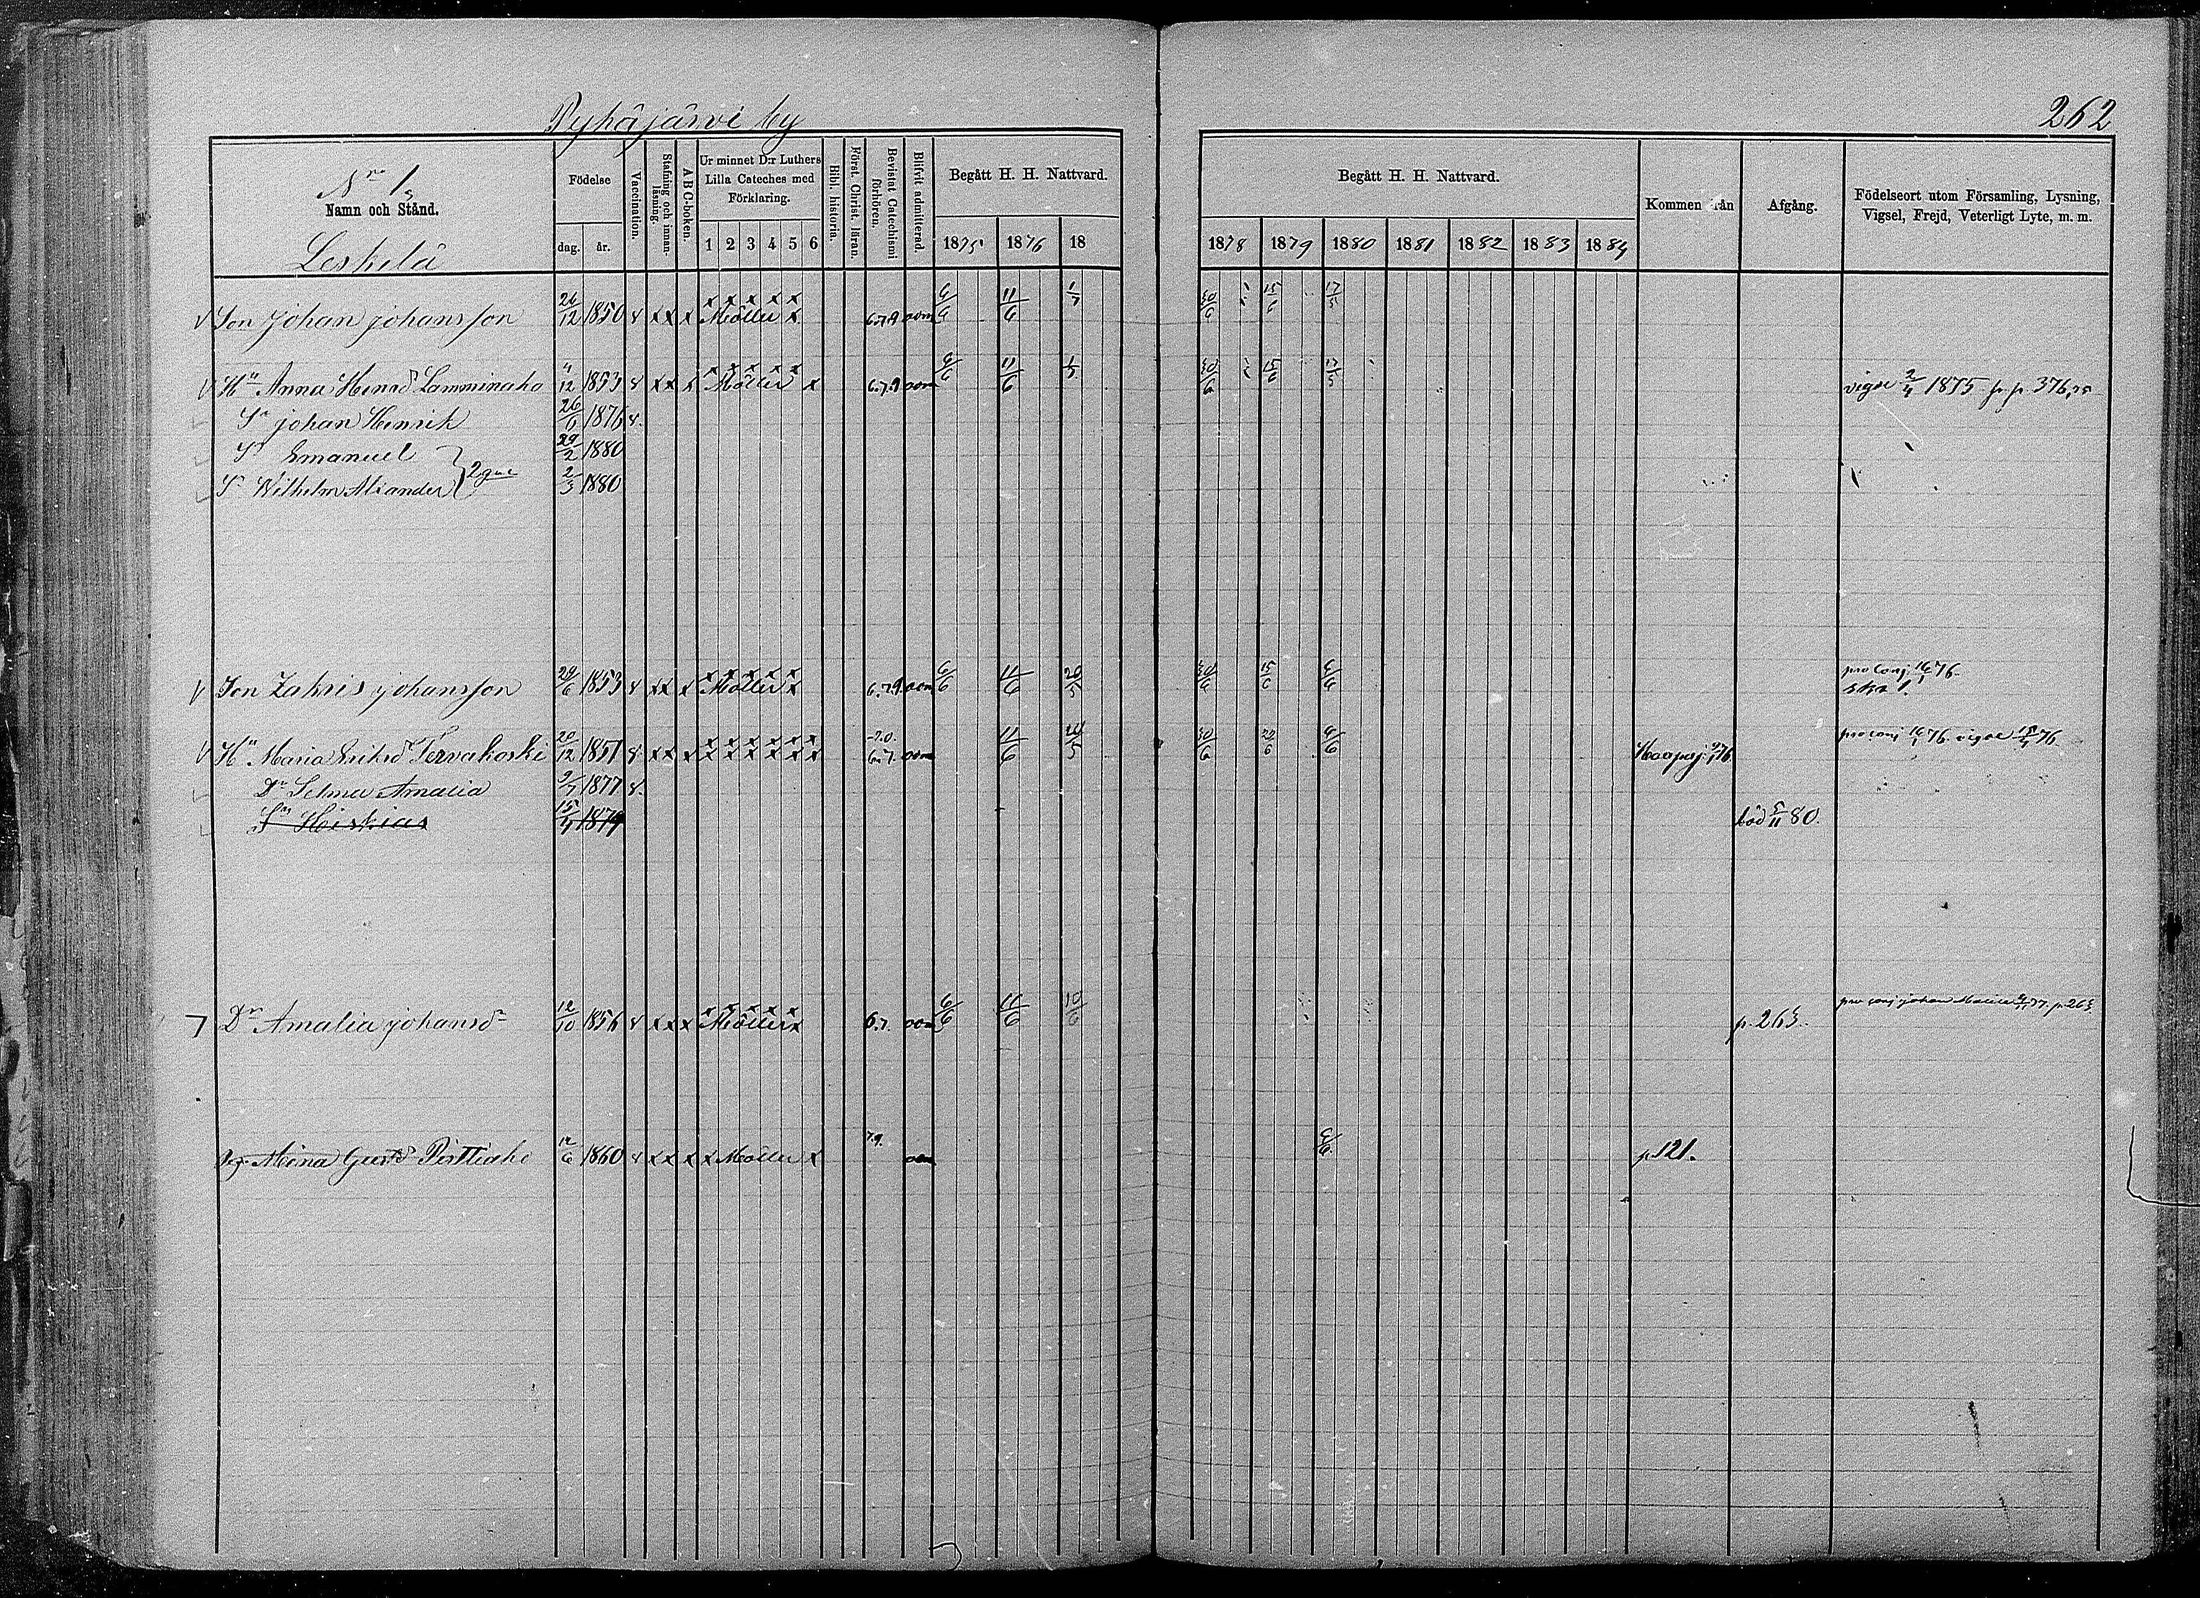 Pyhäjärvi by
262
Nro 1
Namn och Stånd.
Leskelä
Födelse
dag. år.
Vaccination.
Stafning och innan-läsning.
A B C-boken.
Ur minnet D:r Luthers Lilla Cateches med Förklaring.
1 2 3 4 5 6
Bibl. historia.
Först. Christ. läran.
Bevistat Catechismi förhören.
Blifvit admitterad.
Begått H. H. Nattvard.
1875 1876 18
Begått H. H. Nattvard.
1878 1879 1880 1881 1882 1883 1884
Kommen från
Afgång.
Födelseort utom Församling, Lysning, Vigsel, Frejd, Veterligt Lyte, m. m.
Son Johan Johansson 26/12 1850 x xx x Möller x 6.7.9 6/6 11/6 1/7 30/6 15/6 17/5
Hu Anna Henrsdr Lamminaho 11/12 1853 x xx x Möller x 6.7.9 6/6 11/6 1/7 30/6 15/6 17/5 vigde 2/4 1875 fr. p. 376
Sn Johan Henrik 26/6 1876 x
Sn Emanuel 29/2 1880
Sn Wilhelm Aleander 2/3 1880
Son Zakris Johansson 29/6 1853 x xx x Möller x 6.7.9. 6/6 11/6 20/5 30/6 15/6 6/6 pro conj. 16/1 76.
Hu Maria Eriksdr Tervakoski 20/12 1851 x xx x x x x x x x 6.7. 11/6 20/5 30/6 20/6 6/6 Haapaj. 76 pro conj 16/1 76. vigde 76
Dr Selma Amalia 9/7 1877 x
Sn Hiskias 15/4 1879 död 5/11 80.
Dr Amalia Johansdr 12/10 1856 x xx x Möller x 6.7. 6/6 11/6 10/6 p. 263. pro conj Johan 77. p. 263
Pig. Mina Gustdr Pesttiaho 12/6 1860 x x x x x Möller x 7.9. 6/6 p. 121.